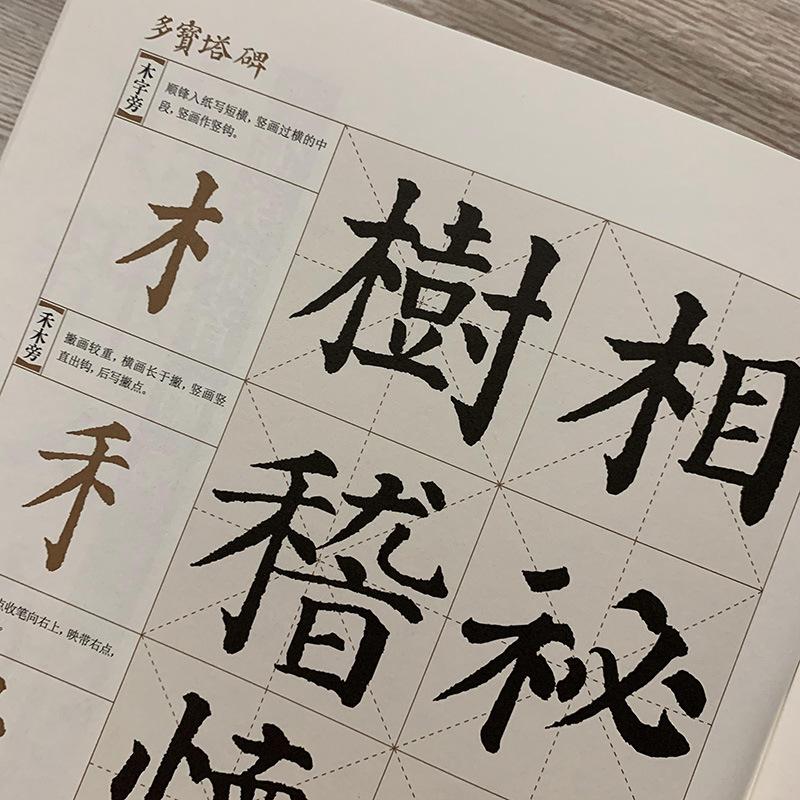 多寶塔碑
木字旁
顺锋入纸写短横，竖画过横的中
段，竖画作竖钩。
木
樹 相
禾木旁
撇画较重，横画长于撇，竖画竖
直出钩，后写撇点。
禾
稽 秘
点收笔向右上，映带右点，